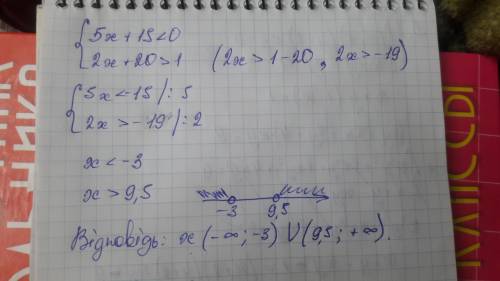 5x+15<0
2x+20>1 (2x>1-20, 2x>-19)
5x<-15/:5
2x>-19/:2
x<-3
x>9,5
-3 9,5
Відповідь: x (-∞;-3) U (9,5;+∞).